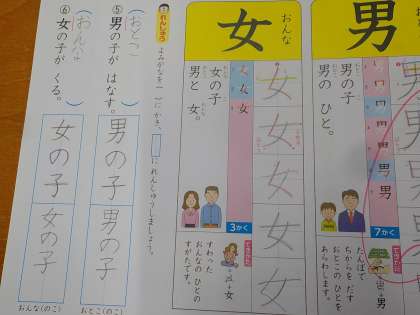 男
男の子
男の ひと。
7かく
たんぼで
ちからを だす
おとこの ひとを
あらわします。
男
女
おんな
女の子
男と 女。
3かく
すわった
おんなの ひとの
すがたです。
女
女
女
女
女
れんしゅう
よみがなを ― にかき、□に れんしゅうしましょう。
⑤ 男の子が はなす。
おとこ
男の子
男の子
おとこ(のこ)
⑥ 女の子が くる。
おんな
女の子
女の子
おんな(のこ)